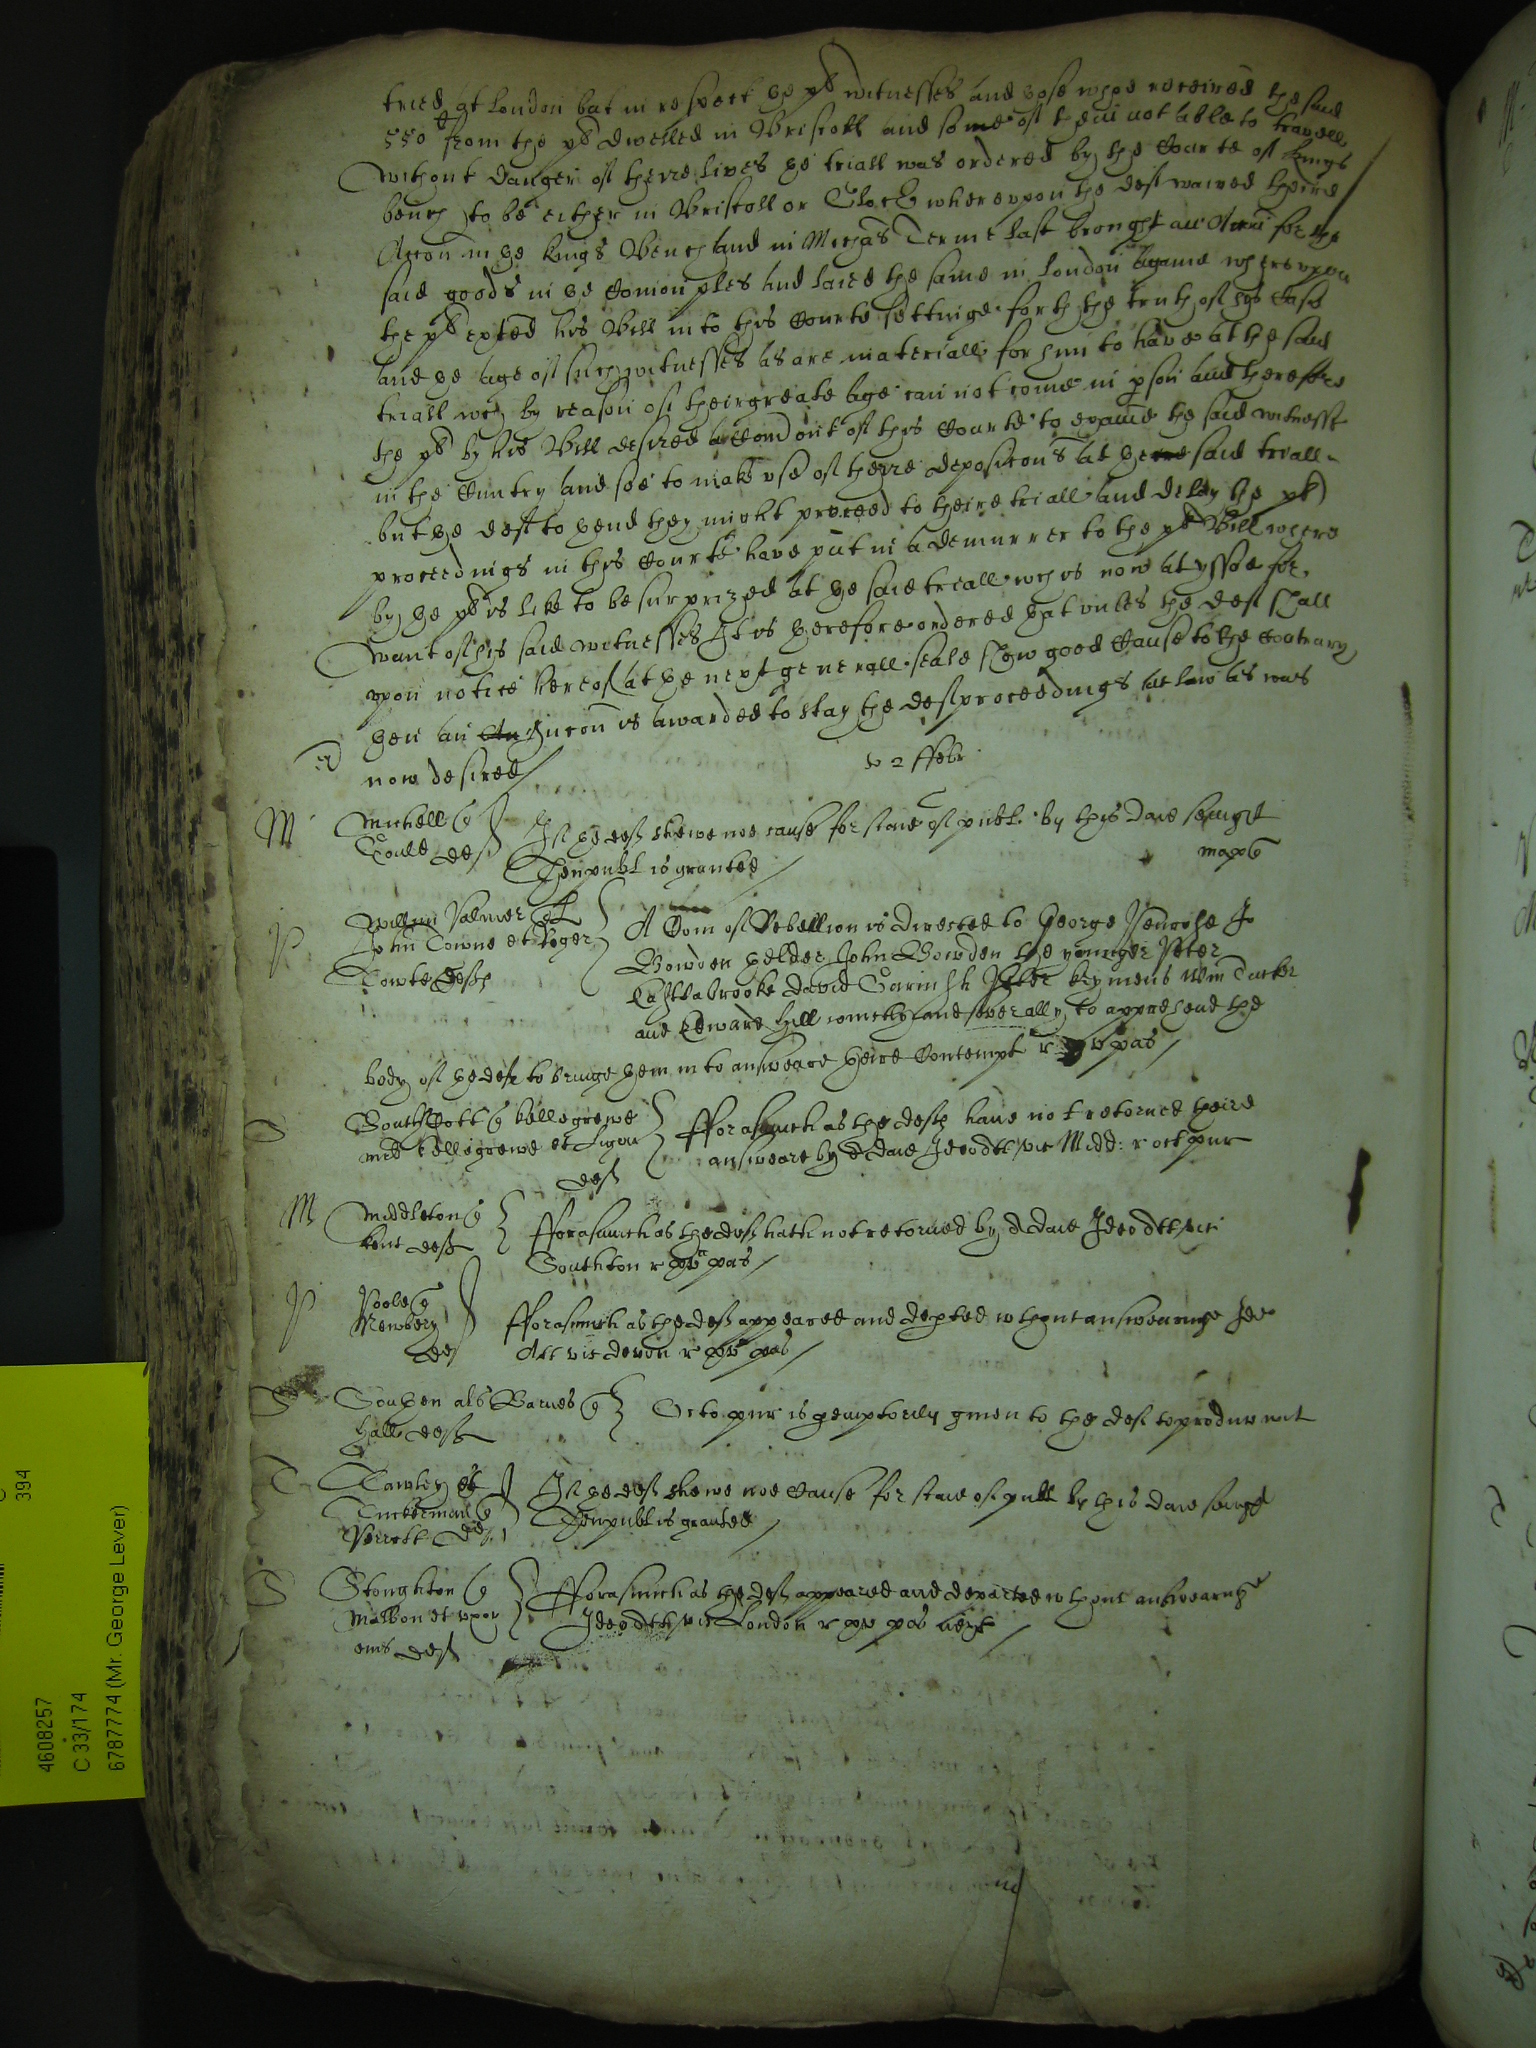 tried at London but in respect the plt witnesses and those whoe received the said
550li from the plt dwelled in Bristoll and some of them not able to travell
without danger of theire lives the triall was ordered by the Courte of kings
bench to be either in Bristoll or Gloc whereuppon the deft waived theire
Accon in the kings Bench and in Michas Terme last brought an Accon for the
said goods in the Comon ples and laied the same in London againe whereupon
the plt exhted his Bill into this Courte settinge forth the truth of his Case
and the age of such witnesses as are materiall for him to have at the said
triall wch by reason of their greate age can not come in pson and therefore
the plt by his Bill desired a Comon out of this Courte to exaime the said witnesses
in the Cuntry and soe to make use of theire deposicons at the said triall
but the deft to thend they might proceed to theire triall and delay the plt
proceedings in this Courte have put in a demurrer to the plt Bill where
by the plt is like to be surprized at the said triall wch is now at yssue for
want of his said witnesses It is therefore ordered that unles the deft shall
upon notice hereof at the next generall seale shew good Cause to the contrary
then an Iniuncon is awarded to stay the deft proceedings at law as was
now desired
2 ffebr
M Michell
Gould deft
If the deft shewe noe cause for staie of publ by this daie sevnight
Then publ is granted
P William Palmer plt
John Towne et Roger
Towke defts
A Com of Rebellion is directed to George Penrose Jo
Bowden thelder John Bowden the younger Peter
Eastabrooke David Peter Keymens Wm Tucker
and Edward Hill iointly and severally to apprehend the
body of the deft to bringe them in to answeare theire Contempt r pas
S Southcott Killegrewe
Killigrewe et
deft
fforasmuch as the defts have not retorned theire
answeare by daie Ideo att vic Midd: r oct pur
M Middleton
Kent deft
fforasmuch as the deft hath not retorned by daie Ideo att vic
Southton r pas
P Poole
Newbery
deft
fforasmuch as the deft appeared and depted wthout answearinge Ideo
Att vic devon r pas
S Southen als Barnes
Hall deft
Octo pur is pemptorily given to the deft to produce wit
T Tawley et
Tuckerman
Perrott deft
If the deft shewe noe Cause for staie of publ by this daie sevnight
Then publ is granted
S Stoughton
Malbon et uxor
eius deft
fforasmuch as the deft appeared and departed wthout answearinge
Ideo att vic London r pas
394
4608257
C 33/174
6787774 (Mr. George Lever)